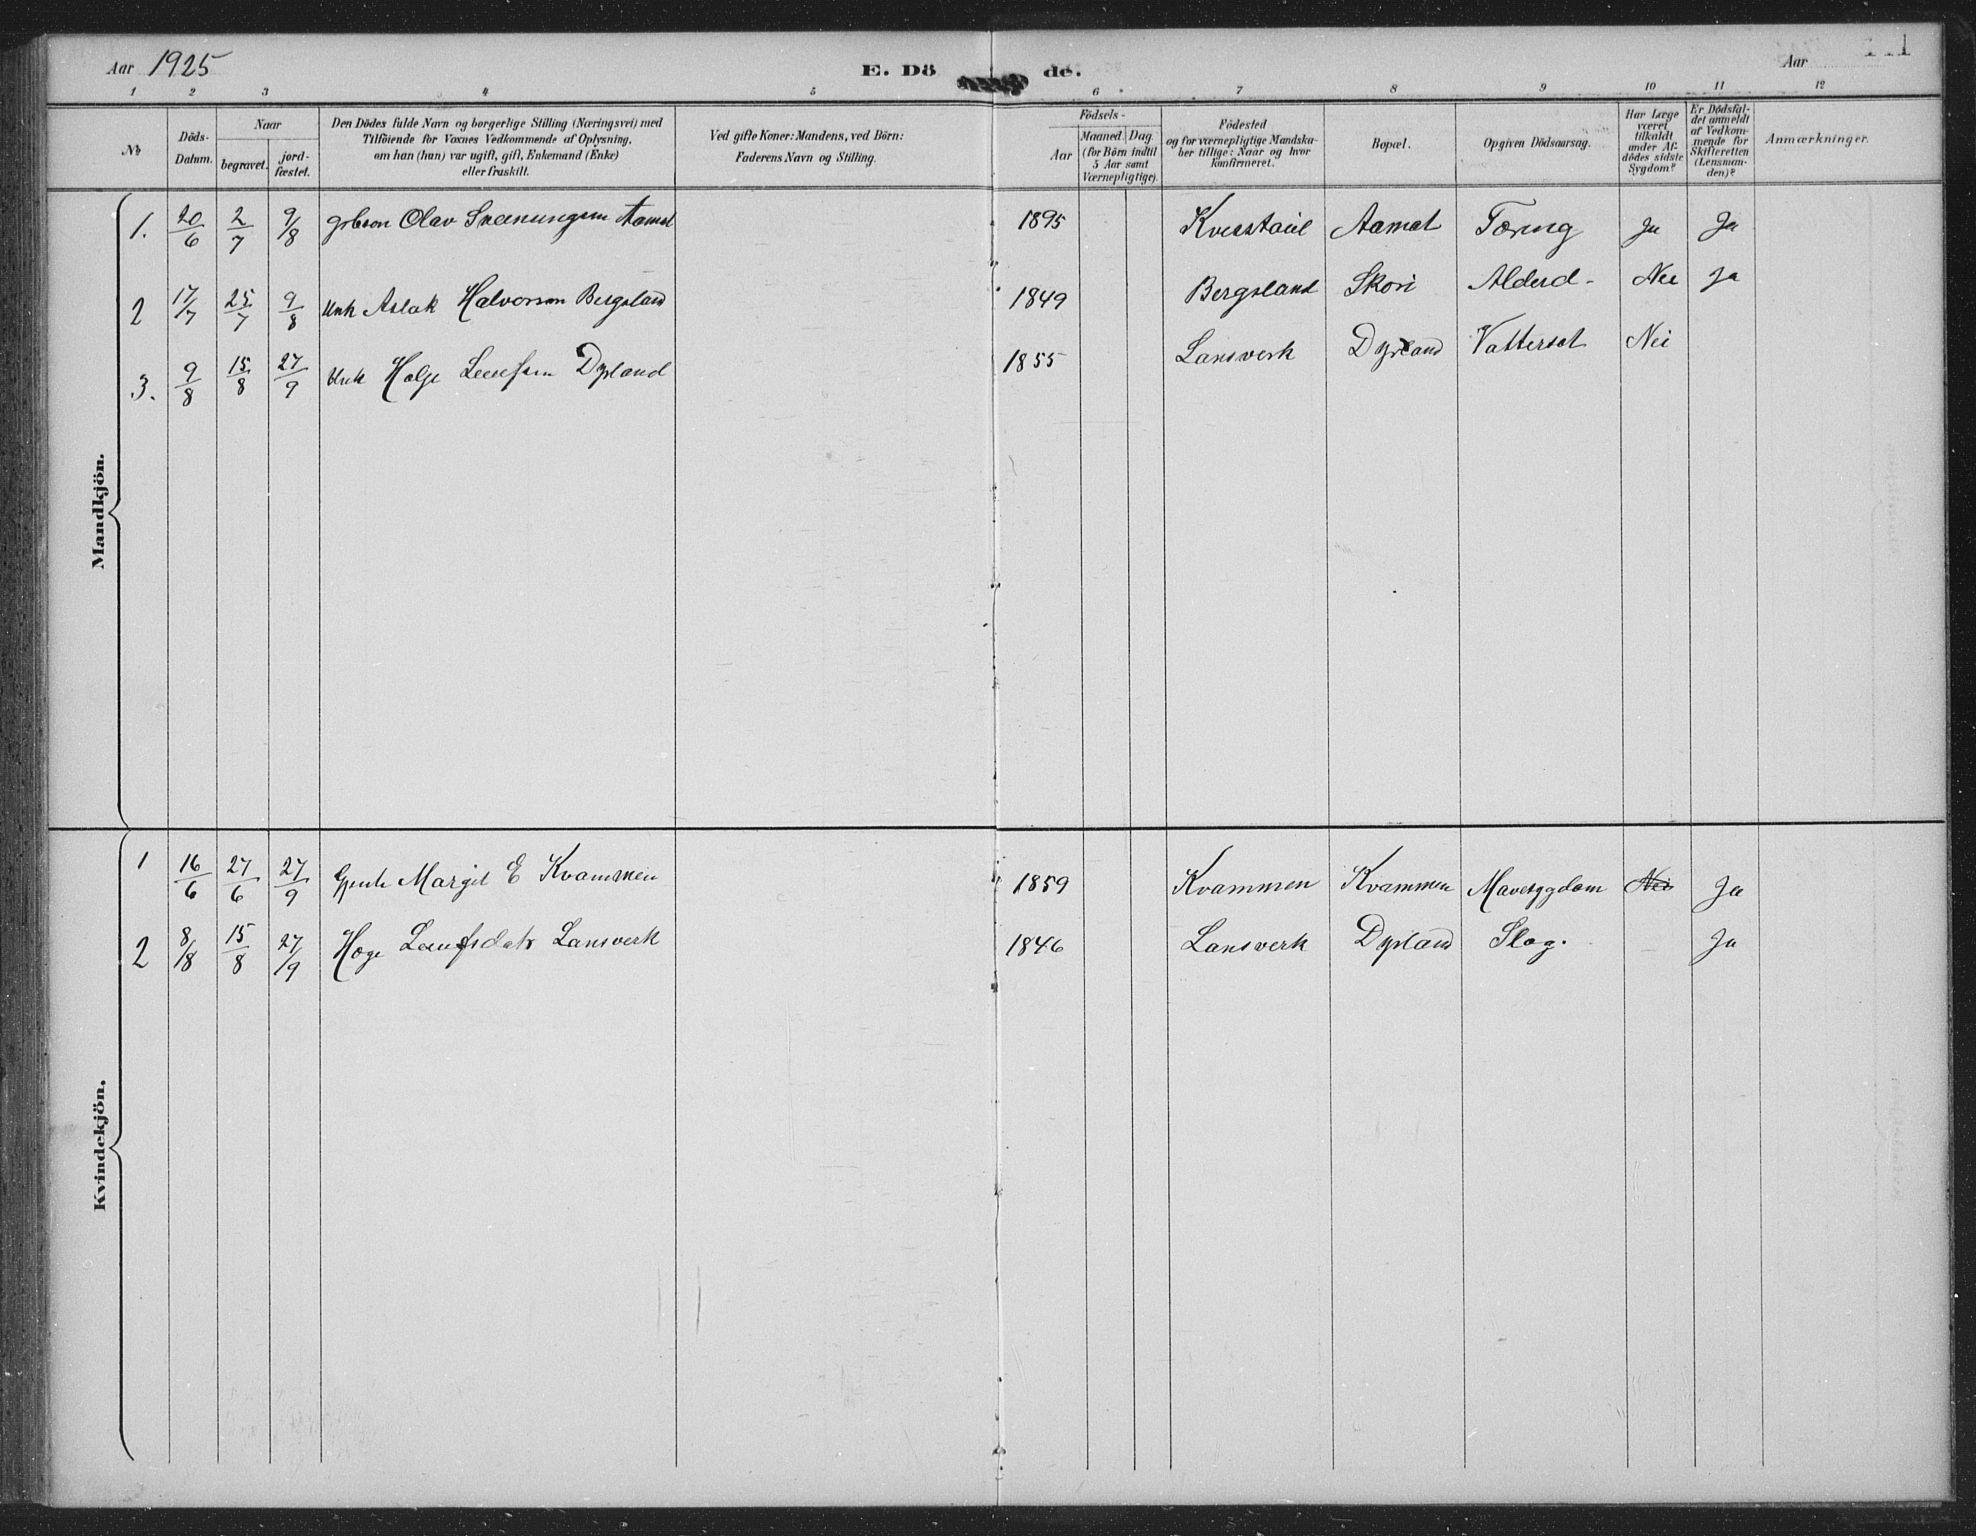 Aar 1925 E. Döde. Aar
1 2 3 4 5 6 7 8 9 10 11 12
№
Döds-Datum.
Naar
begravet.
jord-fæstet.
Den Dödes fulde Navn og borgerlige Stilling (Næringsvei) med
Tilföiende for Voxnes Vedkommende af Oplysning,
om han (hun) var ugift, gift, Enkemand (Enke)
eller fraskilt.
Ved gifte Koner: Mandens, ved Börn:
Faderens Navn og Stilling.
Födsels-
Aar
Maaned. Dag.
(for Börn indtil
5 Aar samt
Værnepligtige).
Födested
og for værnepligtige Mandska-
ber tillige: Naar og hvor
konfirmeret.
Bopæl.
Opgiven Dödsaarsag.
Har Læge
været
tilkaldt
under Af-
dödes sidste
Sygdom?
Er Dödsfal-
det anmeldt
af Vedkom-
mende for
Skifteretten
(Lensman-
den)?
Anmærkninger.
Mandkjön.
1. 20/6 2/7 9/8 Olav Aamot 1895 Aamot Tæring Ja Ja
2 17/7 25/7 9/8 Unk Aslak Halvorson Bergsland 1849 Bergsland Skori Alderd- Nei Ja
3. 9/8 15/8 27/9 Unk Helge Dyrland 1855 Lansverk Dyrland Vattersot Nei
Kvindekjön.
1 16/6 27/6 27/9 Gjente Margit E Kvammen 1859 Kvammen Kvammen Mavesygdom Nei Ja
2 8/8 15/8 27/9 Hæge Lansverk 1846 Lansverk Dyrland Slag. Ja